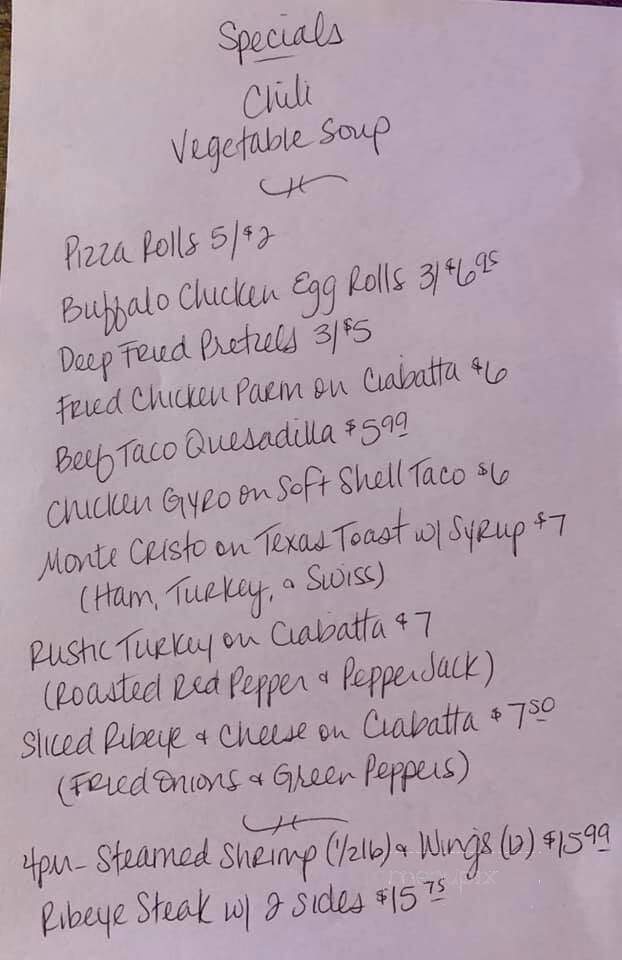 Specials
Chili
Vegetable Soup
Pizza Rolls 5/$2
Buffalo Chicken Egg Rolls 3/$6.95
Deep Fried Pretzels 3/$5
Fried Chicken Parm on Ciabatta $6
Beef Taco Quesadilla $5.99
Chicken Gyro on Soft Shell Taco $6
Monte Cristo on Texas Toast w/ Syrup $7
(Ham, Turkey, & Swiss)
Rustic Turkey on Ciabatta $7
(Roasted Red Pepper & PepperJack)
Sliced Ribeye & Cheese on Ciabatta $7.50
(Fried Onions & Green Peppers)
4pm- Steamed Shrimp (1/2lb) & Wings (6) $15.99
menupix
Ribeye Steak w/ 2 sides $15.75